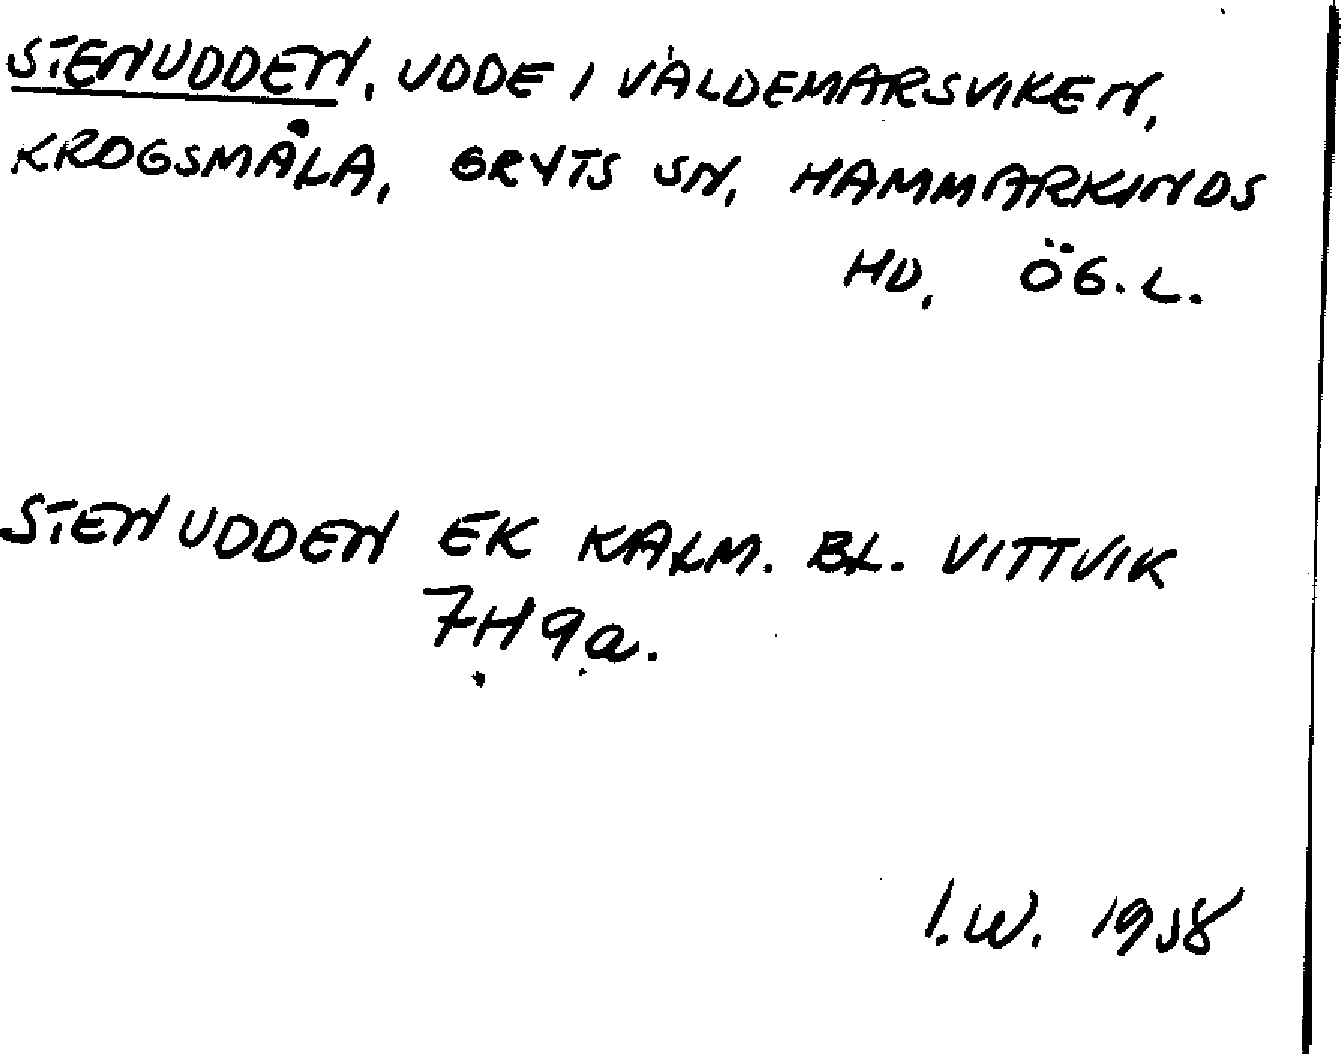 STENUDDEN, UDDE I VALDEMARSVIKEN,
KROGSMÅLA, GRYTS SN, HAMMARKINDS
HD, ÖG. L.
STENUDDEN EK KALM. BL. VITTVIK
7H9a.
I.W. 1958